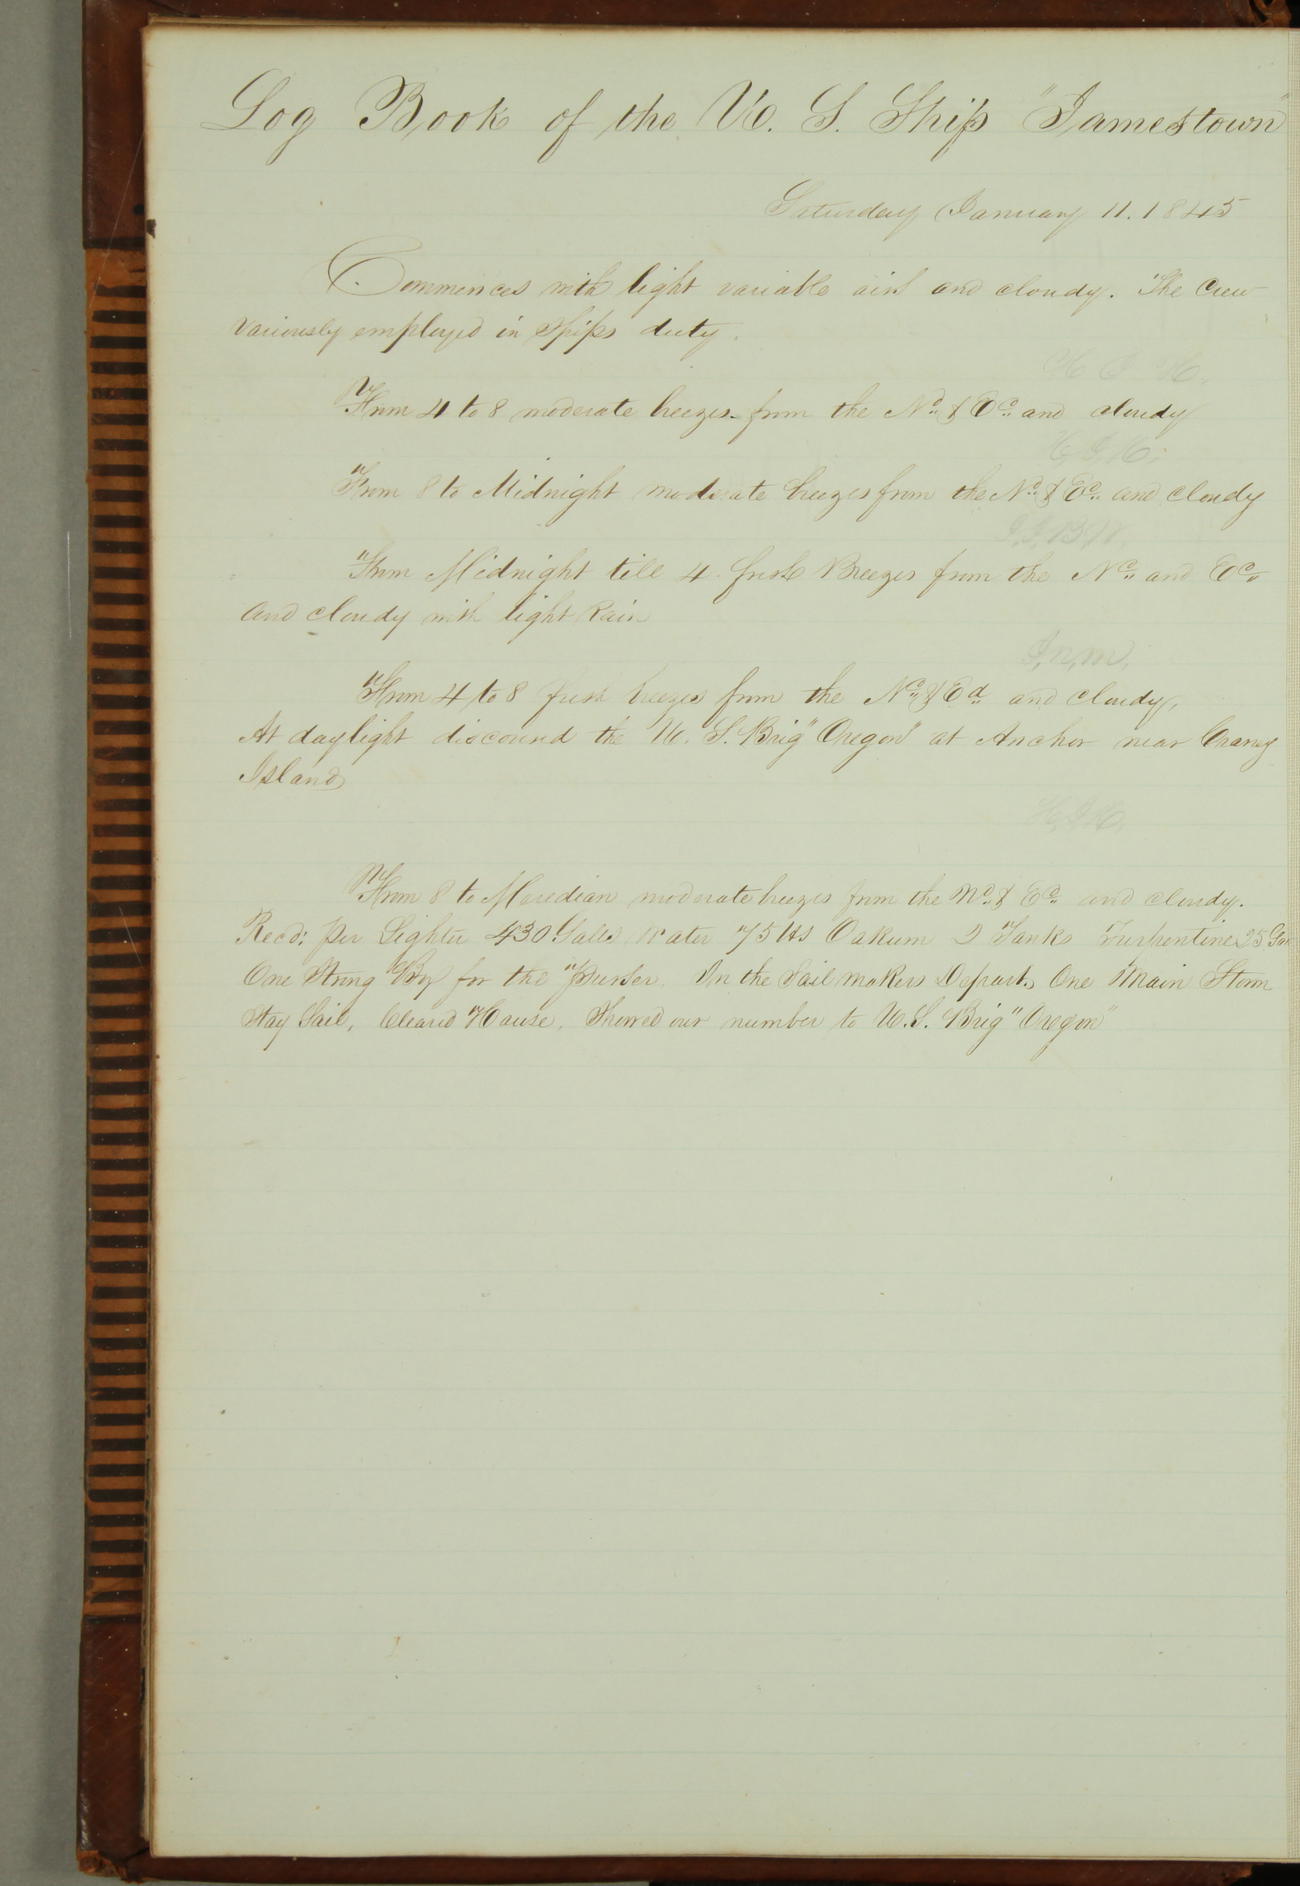 Log Book of the U. S. Ship "Jamestown"
Saturday January 11. 1845
Commences with light variable airs and cloudy. The Crew
variously employed in Ships duty.
From 4 to 8 moderate breezes from the Nd & Ed and cloudy
From 8 to Midnight moderate breezes from the Nd & Ed and Cloudy
From Midnight till 4 fresh Breezes from the Nd and Ed
and cloudy with light Rain
J.N.M.
From 4 to 8 fresh breezes from the Nd & Ed and cloudy,
At daylight discovered the U. S. Brig "Oregon" at Anchor near Craney
Island
From 8 to Meredian moderate breezes from the Nd & Ed and cloudy.
Recd: per Lighter 430 Galls Water 75 lbs Oakum 2 Tanks Turpentine 25 Gal
One Strong Box for the Purser. In the Sail makers Depart. One Main Storm
Stay Sail, Cleared Hawse, Showed our number to U.S. Brig "Oregon"